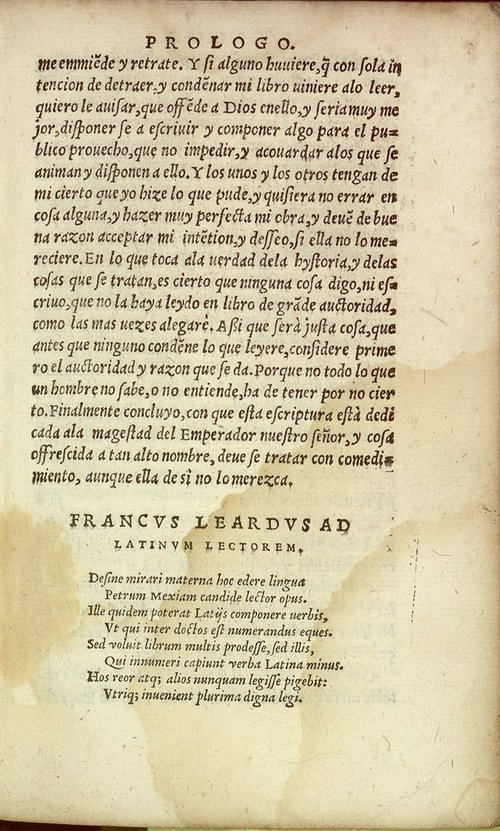 PROLOGO.
me emmiẽde y retrate. Y si alguno huuiere, q̃ con sola in
tencion de detraer, y condẽnar mi libro uiniere alo leer,
quiero le auisar, que offẽde a Dios enello, y seria muy me
jor, disponer se a escriuir y componer algo para el pu=
blico prouecho, que no impedir, y acouardar alos que se
animan y disponen a ello. Y los unos y los otros tengan de
mi cierto que yo hize lo que pude, y quisiera no errar en
cosa alguna, y hazer muy perfecta mi obra, y deuẽ de bue
na razon acceptar mi intẽtion, y desseo, si ella no lo me=
reciere. En lo que toca ala uerdad dela hystoria, y delas
cosas que se tratan, es cierto que ninguna cosa digo, ni es=
criuo, que no la haya leydo en libro de grãde auctoridad,
como las mas uezes alegarè. Assi que serà justa cosa, que
antes que ninguno condẽne lo que leyere, considere prime
ro el auctoridad y razon que se da. Porque no todo lo que
un hombre no sabe, o no entiende, ha de tener por no cier
to. Finalmente concluyo, con que esta escriptura està dedi
cada ala magestad del Emperador nuestro señor, y cosa
offrescida a tan alto nombre, deue se tratar con comedi=
miento, aunque ella de sì no lo merezca.
FRANCVS LEARDVS AD
LATINVM LECTOREM.
Desine mirari materna hoc edere lingua
Petrum Mexiam candide lector opus.
Ille quidem poterat Latijs componere uerbis,
Vt qui inter doctos est numerandus eques.
Sed voluit librum multis prodesse, sed illis,
Qui innumeri capiunt verba Latina minus.
Hos reor atq; alios nunquam legisse pigebit:
Vtriq; inuenient plurima digna legi.